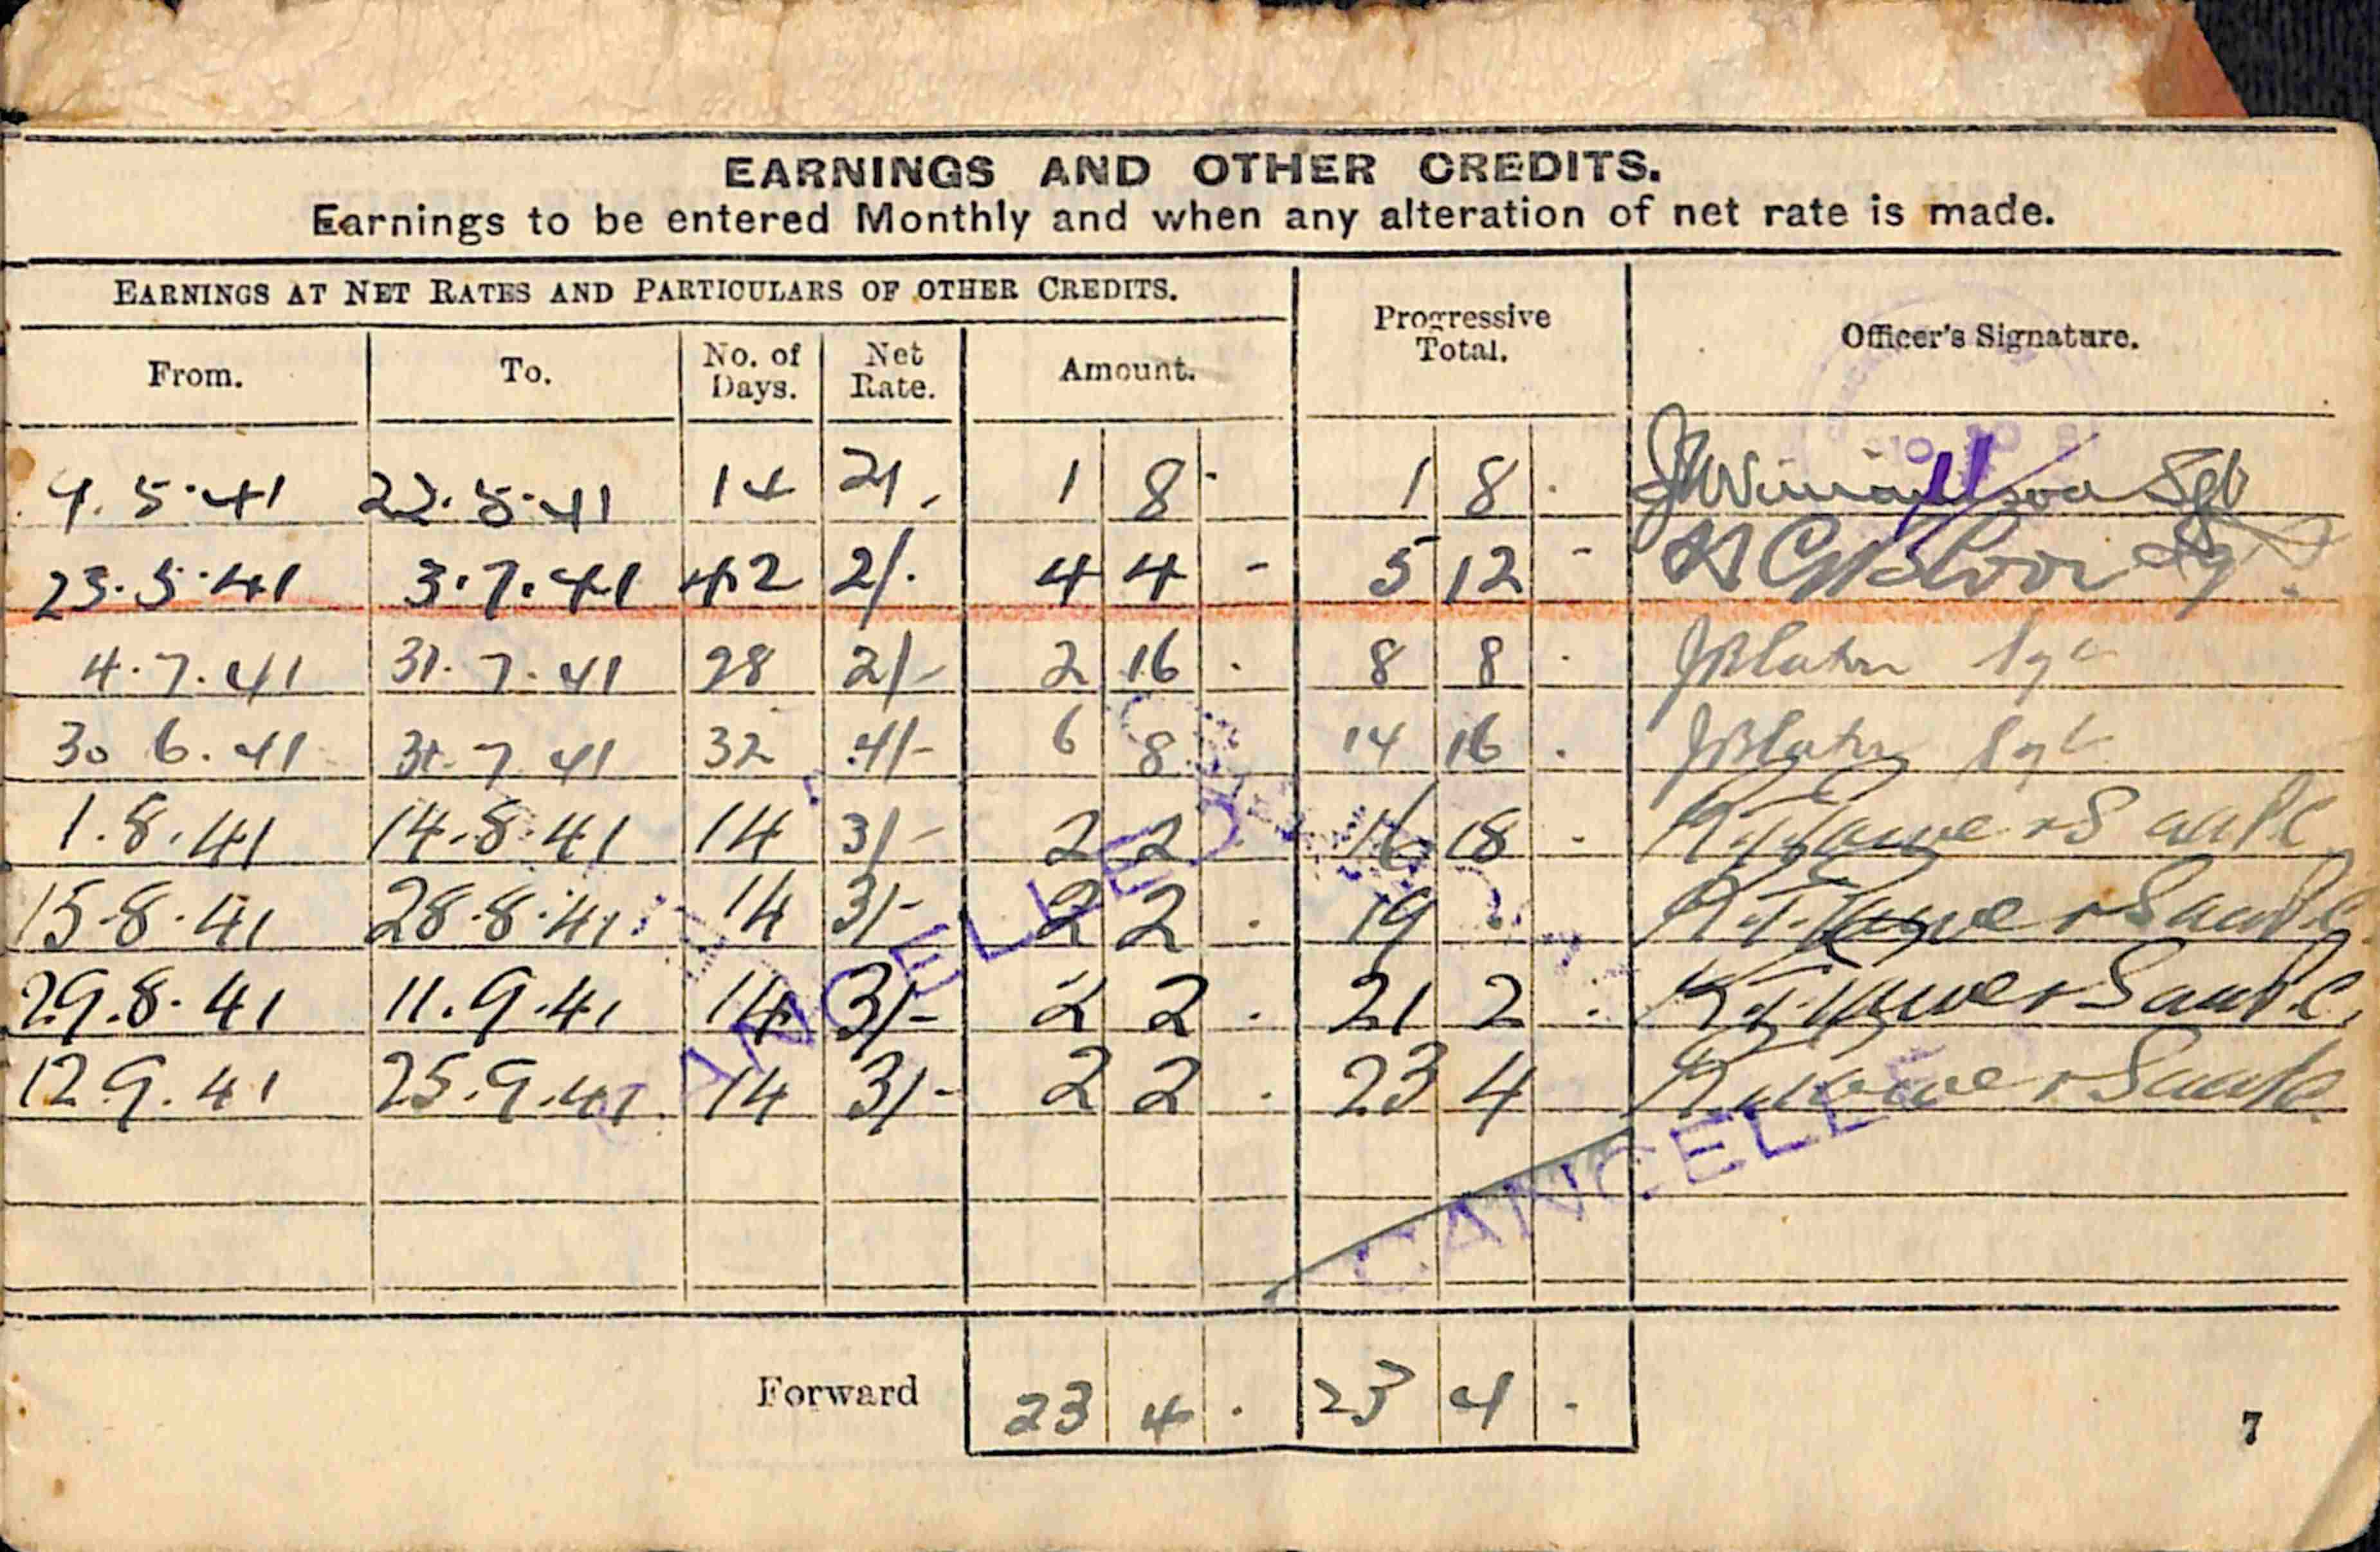 EARNINGS AND OTHER CREDITS.
Earnings to be entered Monthly and when any alteration of net rate is made.
EARNINGS AT NET RATES AND PARTICULARS OF OTHER CREDITS.
Progressive Total.
Officer's Signature.
From. To. No. of Days. Net Rate. Amount.
9.5.41 22.5.41 14 2/- 1 8 - 1 8 . Sgt
23.5.41 3.7.41 42 2/- 4 4 - 5 12 -
4.7.41 31.7.41 28 2/- 2 16 . 8 8 . Sgt
30 6.41 31.7.41 32 4/- 6 8 14 16 . Sgt
1.8.41 14.8.41 14 3/- 2 2 16 18 -
15.8.41 28.8.41 14 3/- 2 2 . 19 .
29.8.41 11.9.41 14 3/- 2 2 . 21 2 .
12.9.41 25.9.41 14 3/- 2 2 . 23 4
CANCELLED
CANCELLED
Forward 23 4 . 23 4 .
7